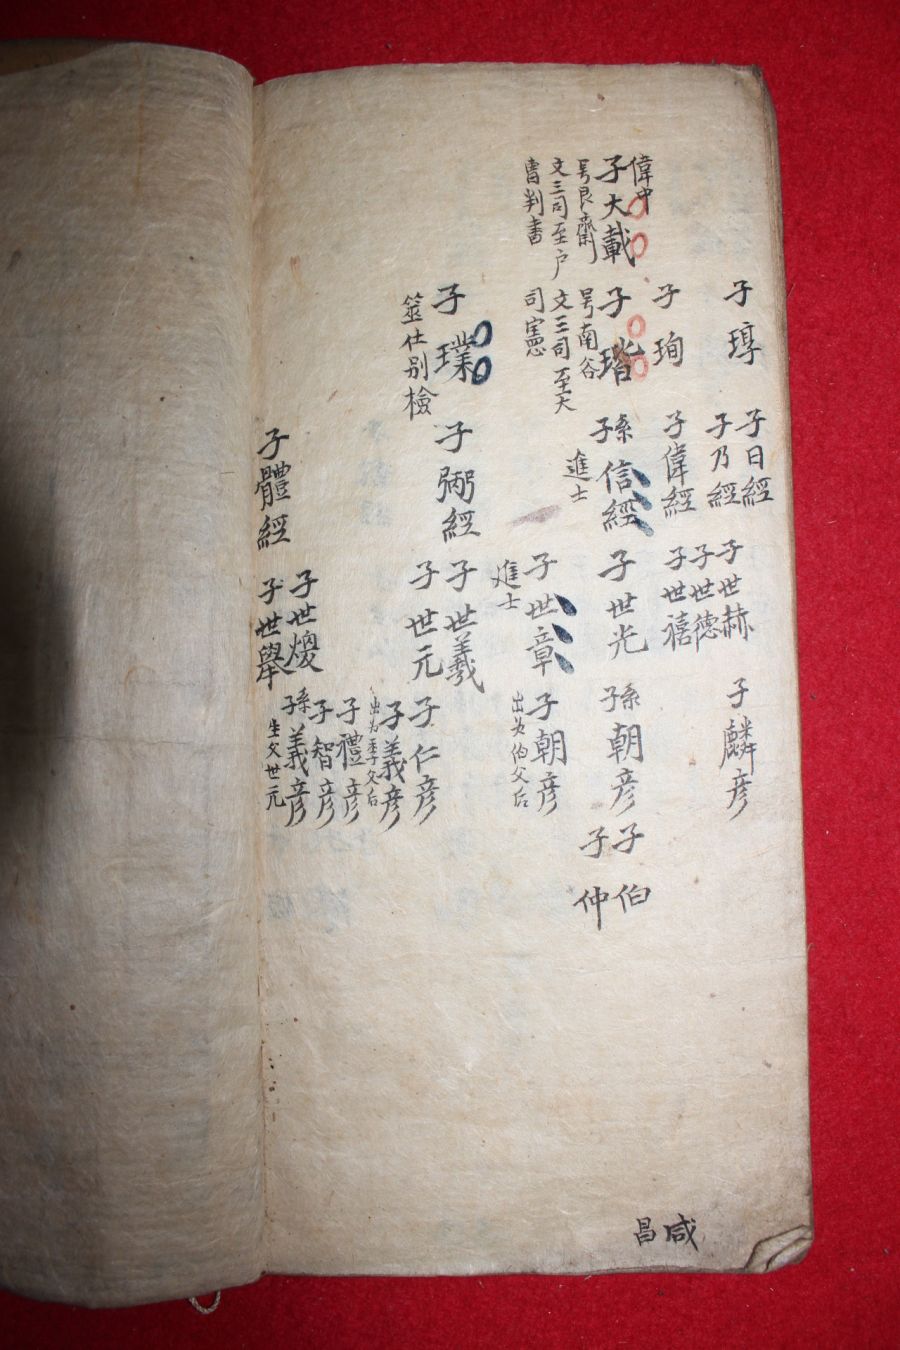 偉中
子大載
号良齋
文三司至户
曺判書
子琸
子珣
子瑎
号南谷
文三司至大
司宪
子璞
筮仕别檢
子日經
子乃經
子偉經
系子信經
進士
子弼經
子體經
子世赫
子世德
子世禧
子世光
子世章
進士
子世義
子世元
子世煐
子世擧
子麟彦
系子朝彦
子朝彦
出为伯父后
子仁彦
子義彦
出为季父后
子禮彦
子智彦
系子義彦
生父世元
子伯
子仲
咸昌